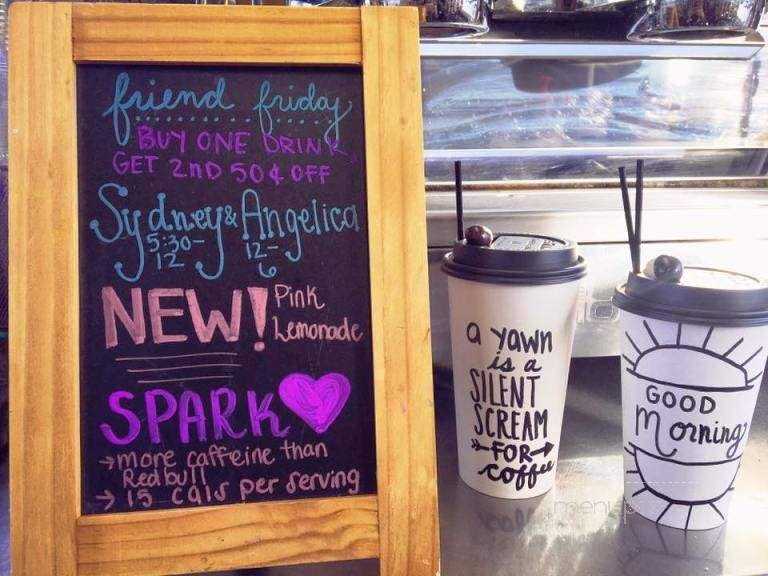 friend friday
BUY ONE DRINK,
GET 2ND 50¢ OFF
Sydney & Angelica
5:30-12
12-6
NEW! Pink Lemonade
SPARK
→more caffeine than
Redbull
→ 15 cals per serving
a yawn
is a
SILENT
SCREAM
FOR
coffee
GOOD
Morning